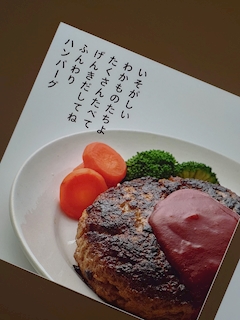 いそがしい
わかものたちよ
たくさんたべて
げんきだしてね
ふんわり
ハンバーグ